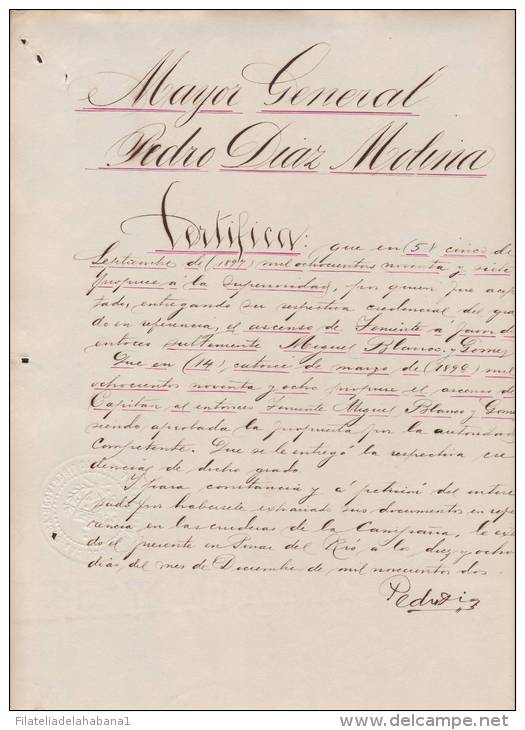 Mayor General
Pedro Diaz Molina
Certifica: que en (5) cinco de
Septiembre de (1897) mil ochocientos noventa y siete
propuse á la Superioridad, por quien fué acep
tado, entregando su respectiva credencial del gra
do en referencia, el ascenso de Teniente á favor del
entoces subteniente Miguel Blanco y Gomez
Que en (14) catorce de marzo de (1898) mil
ochocientos noventa y ocho propuse el ascenso de
Capitan, al entonces Teniente Miguel Blanco y Gomez
siendo aprobada la propuesta por la autoridad
competente. Que se le entregó la respectiva cre
dencial de dicho grado
Y para constancia y á petición del intere
sado por habersele extraviado sus documentos en refe
rencia en las crudezas de la Campaña, le expi
do el presente en Pinar del Río, á los diez y ocho
dias, del mes de Diciembre de mil novecientos dos.
Pedro Diaz
Filateliadelahabana1
delcampe.net